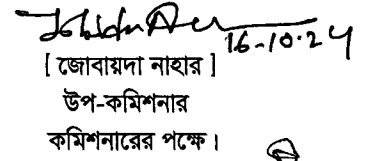 16-10-24
[ জোবায়দা নাহার ]
উপ-কমিশনার
কমিশনারের পক্ষে।